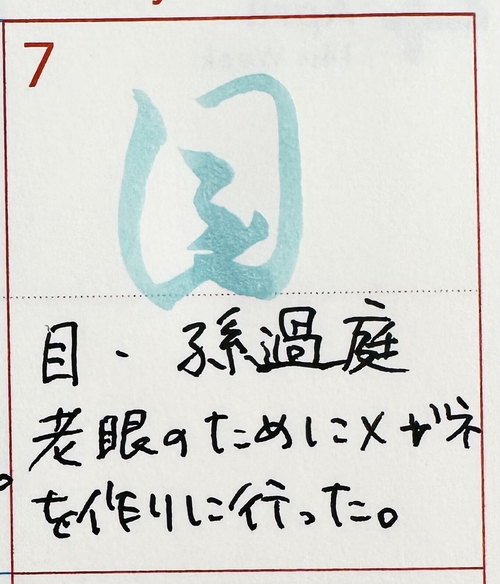 7
目
目・孫過庭
老眼のためにメガネ
を作りに行った。